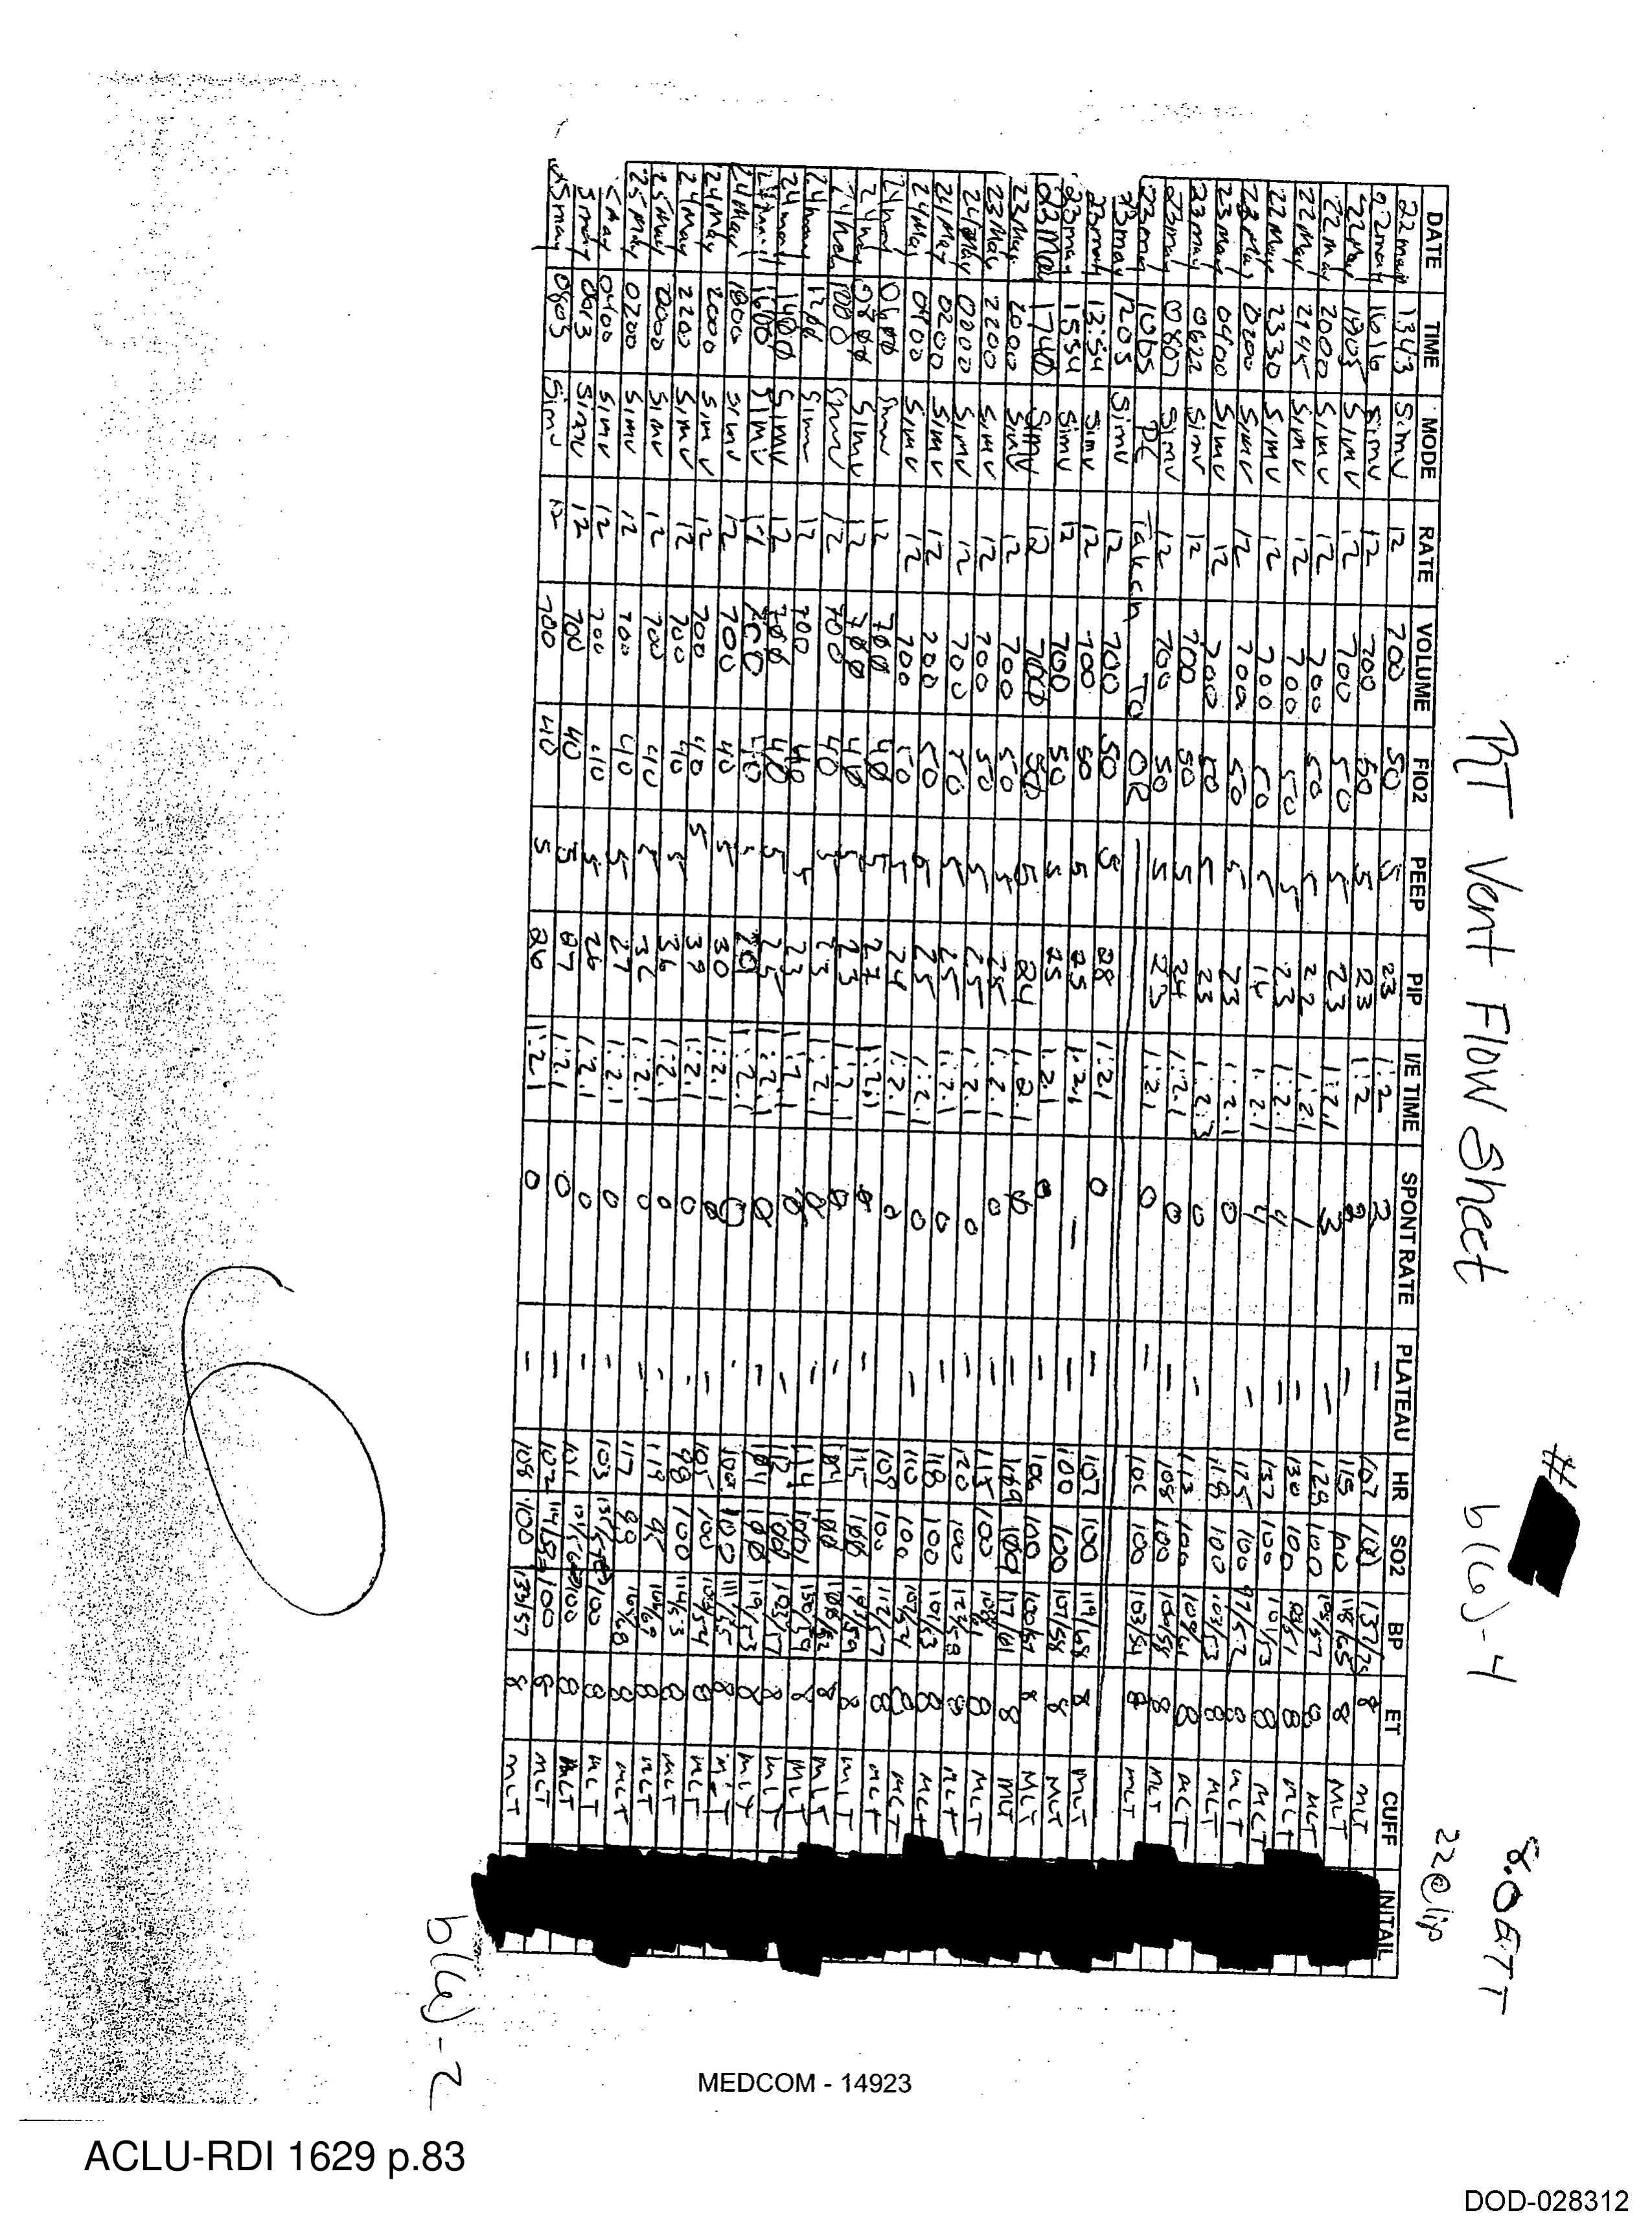 RT Vent Flow Sheet
# b(6)-4
8.0 ETT
22@lip
DATE TIME MODE RATE VOLUME FIO2 PEEP PIP I/E TIME SPONT RATE PLATEAU HR SO2 BP ET CUFF INITAIL
22 may 1343 Simv 12 700 50 5 23 1:2 2 — 107 100 137/75 8 MLT
22 may 1616 Simv 12 700 50 5 23 1:2 — 115 118/65 8 MLT
22 May 1805 SIMV 12 700 50 5 23 1:2.1 3 — 128 100 8 MLT
22 May 2000 SIMV 12 700 50 5 22 1:2.1 1 — 130 100 8 MLT
22 May 2145 SIMV 12 700 50 5 23 1:2.1 4 — 137 100 101/53 8 MLT
22 May 2330 SIMV 12 700 50 5 1:2.1 4 — 125 100 97/52 8 MLT
23 May 0200 SIMV 12 700 50 5 23 1:2.1 0 118 100 103/53 8 MLT
23 May 0400 SIMV 12 700 50 5 23 1:2.3 0 — 113 100 8 MLT
23 may 0622 Simv 12 700 50 5 24 1:2.1 0 — 108 100 100/58 8 MLT
23 may 0807 Simv 12 700 50 5 23 1:2.1 0 — 100 103/54 8 MLT
23 may 1005 Taken To OR
23 may 1205 Simv 12 700 50 5 28 1:2.1 0 — 107 100 119/68 8 MLT
23 may 1354 Simv 12 700 50 5 25 1:2.1 — — 100 100 107/58 8 MLT
23 may 1554 Simv 12 700 50 5 25 1:2.1 0 — 106 100 8 MLT
23 May 1740 SIMV 12 700 50 5 24 1:2.1 0 — 109 100 117/61 8 MLT
23 May 2000 SIMV 12 700 50 5 25 1:2.1 0 — 115 100 8 MLT
23 May 2200 SIMV 12 700 50 5 25 1:2.1 0 — 120 100 8 MLT
24 May 0000 SIMV 12 700 50 5 25 1:2.1 0 — 118 100 101/53 8 MLT
24 May 0200 SIMV 12 700 50 5 25 1:2.1 0 — 110 100 8 MLT
24 May 0400 SIMV 12 700 50 5 24 1:2.1 0 109 100 112/57 8 MLT
24 may 0600 Simv 12 700 40 5 27 1:2.1 0 — 115 100 8 MLT
24 may 0800 Simv 12 700 40 5 23 1:2.1 0 — 100 108/52 8 MLT
24 may 1000 Simv 12 700 40 5 23 1:2.1 0 — 114 100 8 MLT
24 may 1200 Simv 12 700 40 5 23 1:2.1 0 — 100 103/57 8 MLT
24 may 1400 SIMV 12 700 40 5 25 1:2.1 0 — 100 119/53 8 MLT
24 May 1600 SIMV 700 40 5 1:2.1 0 — 100 100 111/55 8 MLT
24 May 1800 SIMV 12 700 40 5 30 1:2.1 0 — 105 100 8 MLT
24 May 2000 SIMV 12 700 40 5 39 1:2.1 0 — 100 114/53 8 MLT
24 May 2200 SIMV 12 700 40 5 36 1:2.1 0 — 119 95 8 MLT
25 May 0000 SIMV 12 700 40 5 36 1:2.1 0 — 117 8 MLT
25 May 0200 SIMV 12 700 40 5 27 1:2.1 0 — 103 100 8 MLT
May 0400 SIMV 12 700 40 5 26 1:2.1 0 — 101 100 8 MLT
5 may 0613 SIMV 12 700 40 5 27 1:2.1 0 — 102 100 8 MLT
25 may 0805 Simv 12 700 40 5 26 1:2.1 0 — 108 100 131/57 8 MLT
b(6)-2
MEDCOM - 14923
ACLU-RDI 1629 p.83
DOD-028312